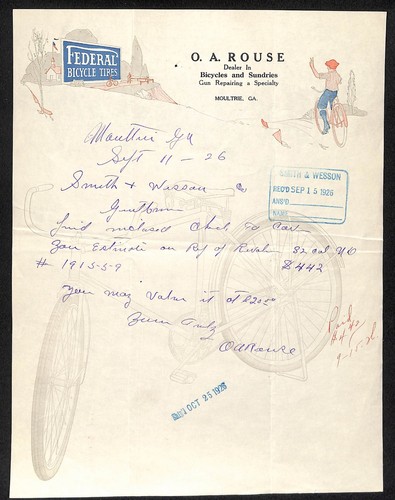 FEDERAL
BICYCLE TIRES
O. A. ROUSE
Dealer In
Bicycles and Sundries
Gun Repairing a Specialty
MOULTRIE, GA.
Moultrie Ga
Sept 11 - 26
Smith & Wesson Co
SMITH & WESSON
REC'D SEP 15 1926
ANS'D
NAME
Gentlemen
find inclosed Check to Cover
Your Estimate on Rep of Revolver 32 Cal No
# 191559 $4.42
you may Value it at $20.00
Yours Truly
OARouse
Paid
$4.42
9-15-26
OCT 25 1926